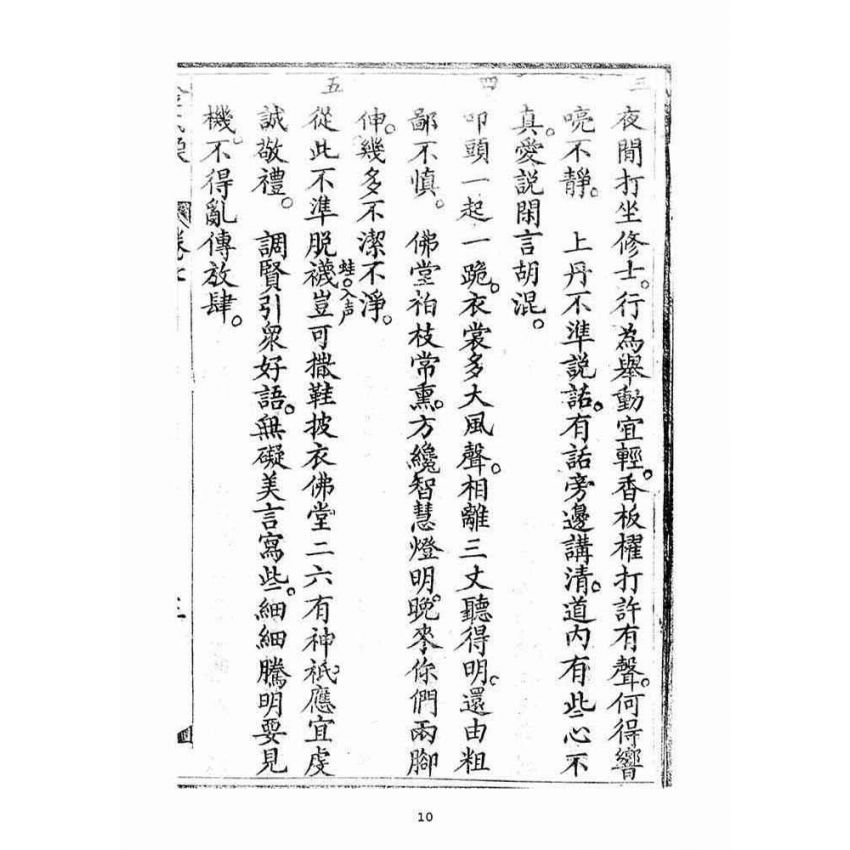 三
夜間打坐修士。行為舉動宜輕。香板櫂打許有聲。何得響
喨不靜。　上丹不準説話。有話旁邊講清。道內有些心不
真。愛説閑言胡混。
四
叩頭一起一跪。衣裳多大風聲。相離三丈聽得明。還由粗
鄙不慎。　佛堂袙枝常熏。方纔智慧燈明。晚參你們兩腳
伸。幾多不潔不淨。
五
從此不準脱襪豈可撒鞋披衣佛堂二六有神祇。應宜虔
蛙。入声
誠敬禮。　調賢引衆好語。無礙美言寫些。細細騰明要見
機。不得亂傳放肆。
10